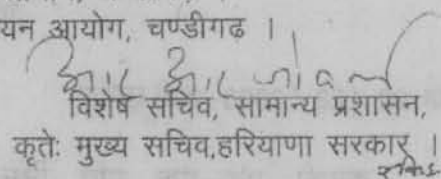 यन आयोग, चण्डीगढ ।
विशेष सचिव, सामान्य प्रशासन,
कृतेः मुख्य सचिव,हरियाणा सरकार ।